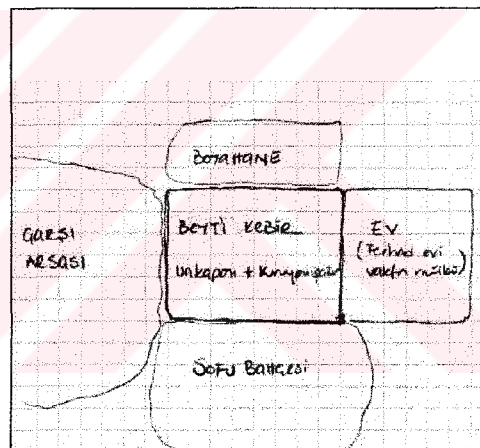 BOZAHANE
ÇARŞI
ARSASI
BEYTİ KEBİR
Unkapanı +
EV
(Ferhad evi
vakfın mülkü)
SOFU BAHÇESİ